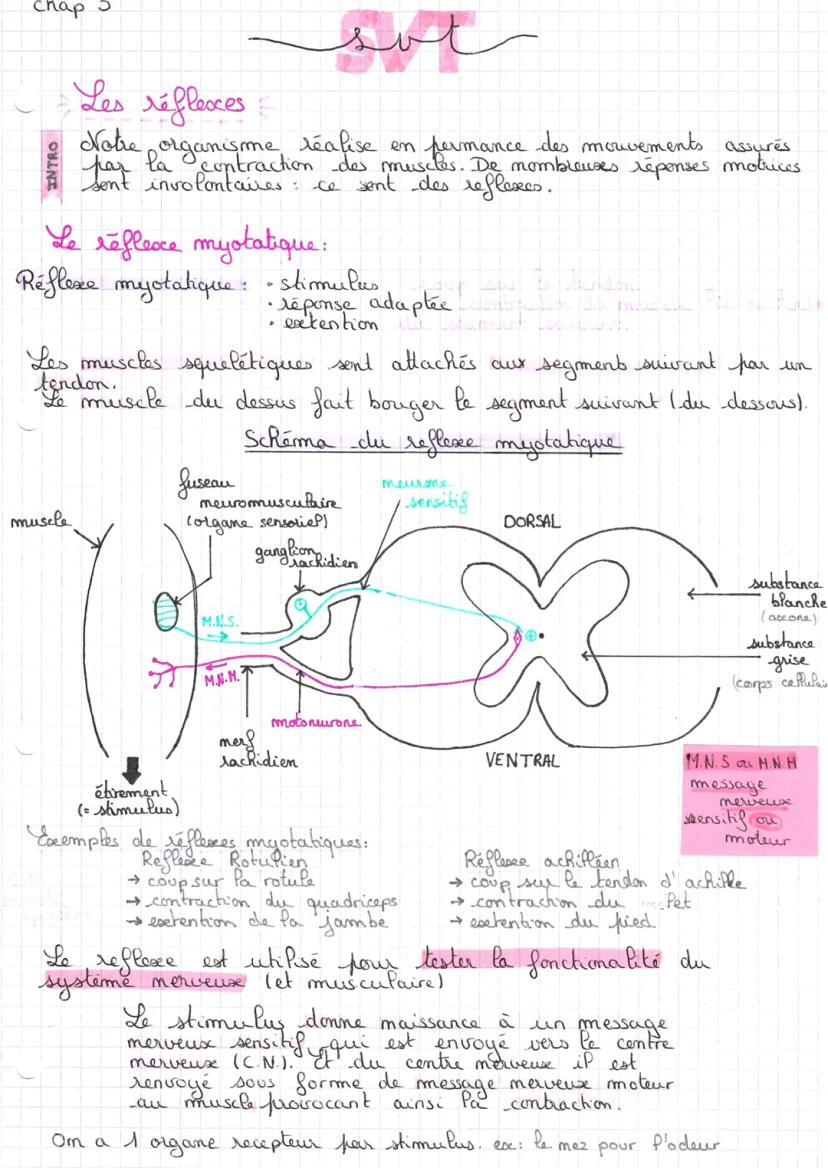 Chap 5
svt
SVT
Les réflexes
INTRO
Notre organisme réalise en permance des mouvements assurés
par la contraction des muscles. De nombreuses réponses motrices
sont involontaires : ce sont des reflexes.
Le réflexe myotatique :
Réflexe myotatique : • stimulus
• réponse adaptée
• extention
Les muscles squelétiques sont attachés aux segment suivant par un
tendon.
Le muscle du dessus fait bouger le segment suivant (du dessous).
Schéma du reflexe myotatique
muscle
fuseau
neuromusculaire
(organe sensoriel)
ganglion
rachidien
neurone
sensitif
DORSAL
substance
blanche
(axone)
substance
grise
(corps cellulai
M.N.S.
M.N.M.
motoneurone
nerf
rachidien
VENTRAL
étirement
(= stimulus)
M.N.S ou M.N.M
message
nerveux
sensitif ou
moteur
Exemples de réflexes myotatiques :
Reflexe Rotulien
→ coup sur la rotule
→ contraction du quadriceps
→ extention de la jambe
Réflexe achilléen
→ coup sur le tendon d'achille
→ contraction du
→ extention du pied
Le reflexe est utilisé pour tester la fonctionalité du
système nerveux (et musculaire)
Le stimulus donne naissance à un message
nerveux sensitif qui est envoyé vers le centre
nerveux (C.N.). Et du centre nerveux il est
renvoyé sous forme de message nerveux moteur
au muscle provocant ainsi la contraction.
On a 1 organe recepteur par stimulus. ex : le nez pour l'odeur